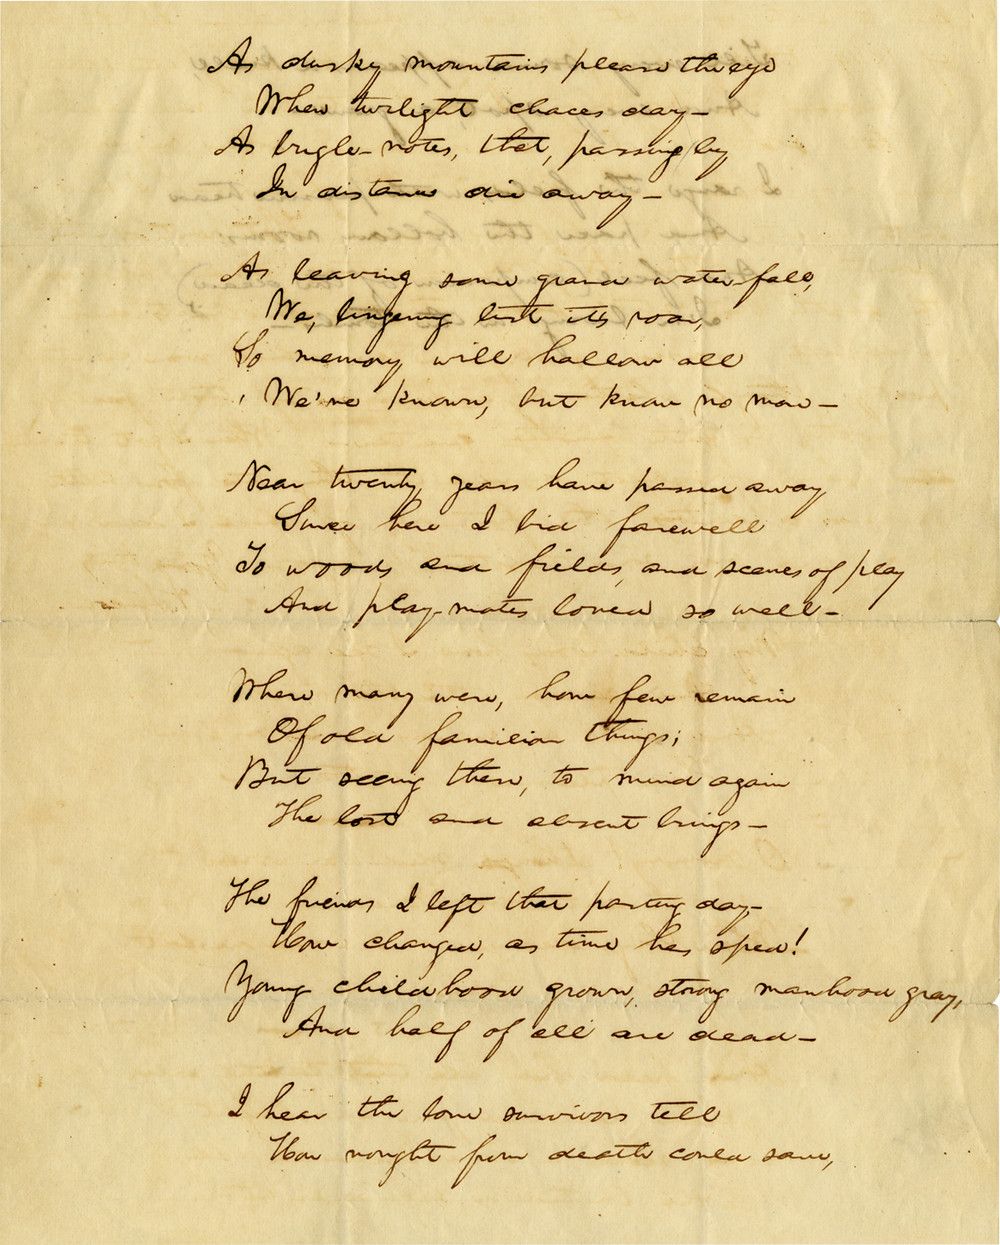 As dusky mountains please the eye
When twilight chaces day—
As bugle-notes, that, passing by
In distance die away—
As leaving some grand water-fall,
We, lingering list it's roar,
So memory will hallow all
We've known, but know no more—
Near twenty years have passed away
Since here I bid farewell
To woods and fields, and scenes of play
And play-mates loved so well—
Where many were, how few remain
Of old familiar things;
But seeing them, to mind again
The lost and absent brings—
The friends I left that parting day—
How changed, as time has sped!
Young childhood grown, strong manhood gray,
And half of all are dead—
I hear the lone survivors tell
How nought from death could save,